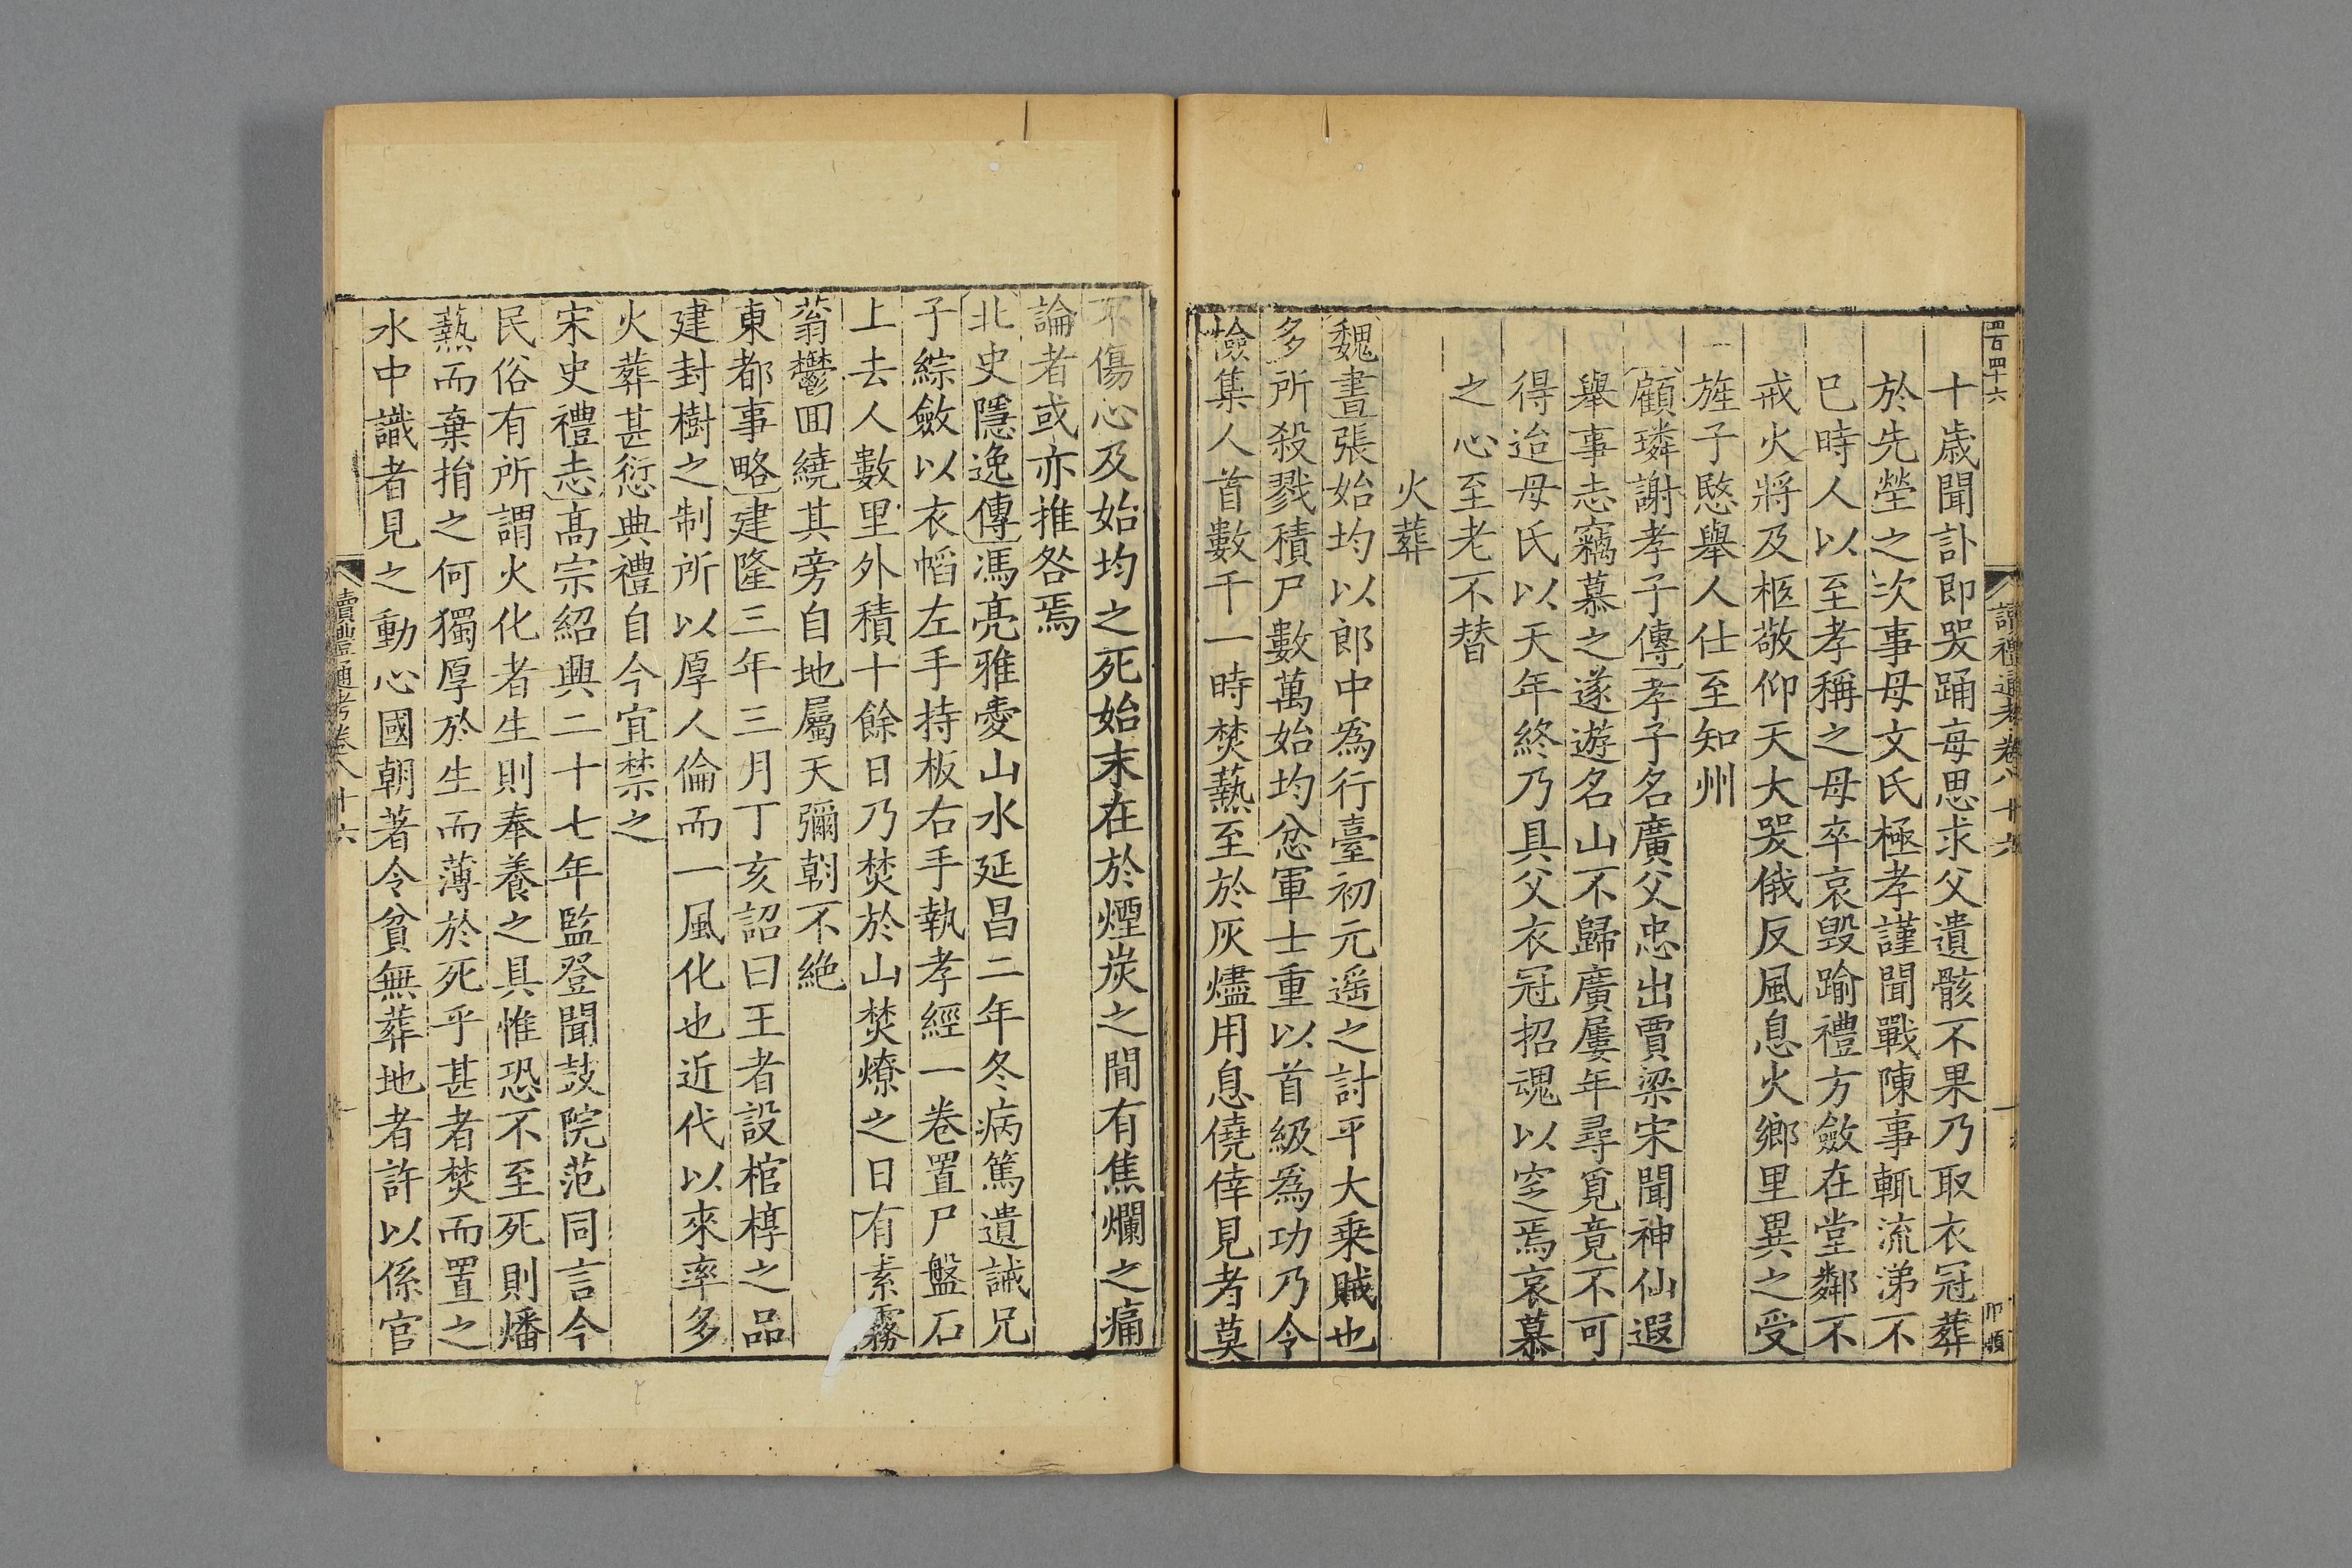 四百四十六
讀禮通考卷八十六
十歳聞訃即哭踊毎思求父遺骸不果乃取衣冠葬
於先塋之次事母文氏極孝謹聞戰陳事輒流涕不
巳時人以至孝稱之母卒哀毀踰禮方斂在堂鄰不
戒火將及柩敬仰天大哭俄反風息火鄉里異之受
旌子愍舉人仕至知州
顧璘謝孝子傳孝子名廣父忠出賈梁宋聞神仙遐
舉事志竊慕之遂遊名山不歸廣屢年尋覓竟不可
得迨母氏以天年終乃具父衣冠招魂以窆焉哀慕
之心至老不替
火葬
魏書張始均以郎中為行臺初元遥之討平大乗賊也
多所殺戮積尸數萬始均忿軍士重以首級為功乃令
檢集人首數千一時焚爇至於灰燼用息僥倖見者莫
不傷心及始均之死始末在於煙炭之間有焦爛之痛
論者或亦推咎焉
北史隱逸傳馮亮雅愛山水延昌二年冬病篤遺誡兄
子綜斂以衣幍左手持板右手執孝經一卷置尸盤石
上去人數里外積十餘日乃焚於山焚燎之日有素霧
蓊鬱囬繞其旁自地屬天彌朝不絶
東都事略建隆三年三月丁亥詔曰王者設棺椁之品
建封樹之制所以厚人倫而一風化也近代以來率多
火葬甚愆典禮自今宜禁之
宋史禮志高宗紹興二十七年監登聞鼓院范同言今
民俗有所謂火化者生則奉養之具惟恐不至死則燔
爇而棄捐之何獨厚於生而薄於死乎甚者焚而置之
水中識者見之動心國朝著令貧無葬地者許以係官
讀禮通考卷八十六